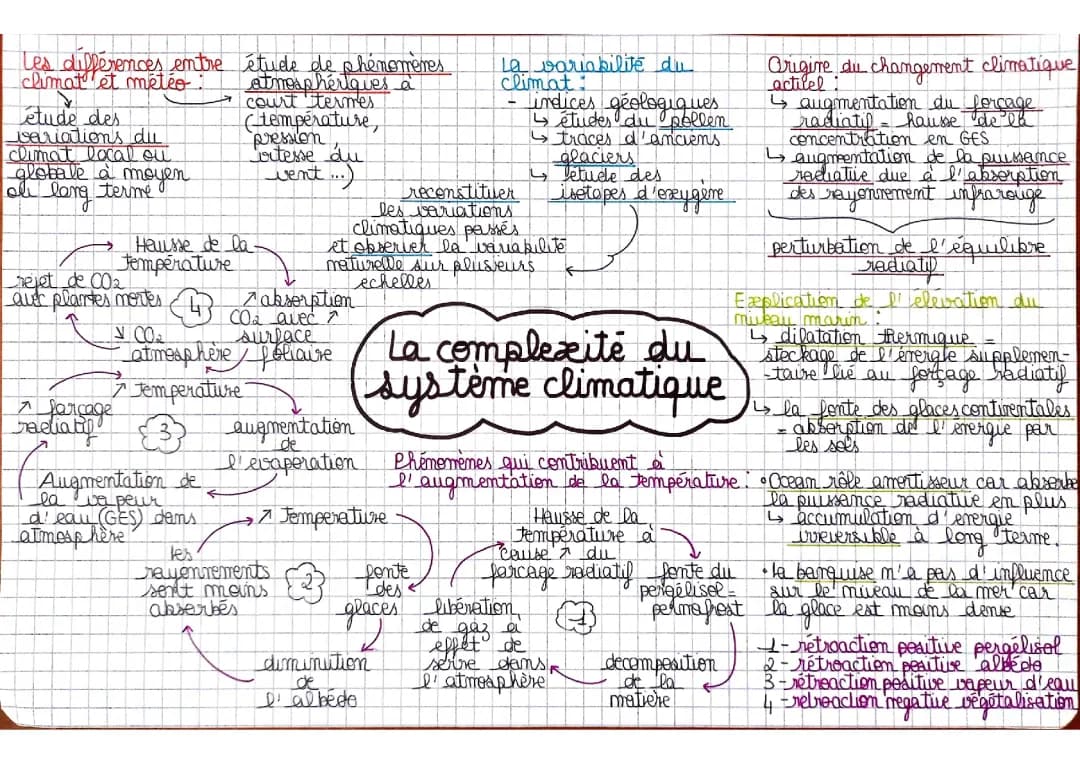 Les différences entre
climat et météo :
étude des
variations du
climat local ou
globale à moyen
ou long terme
étude de phénomères
atmosphériques à
court termes
(température,
pression,
vitesse du
vent ...)
La variabilité du
climat :
- indices géologiques
↳ études du pollen
↳ traces d'anciens
glaciers
↳ étude des
isotopes d'oxygène
reconstituer
les variations
climatiques passés
et observer la variabilité
naturelle sur plusieurs
echelles
Origine du changement climatique
actuel :
↳ augmentation du forçage
radiatif = hausse de la
concentration en GES
↳ augmentation de la puissance
radiative due à l'absorption
des rayonnement infrarouge
perturbation de l'équilibre
radiatif
Explication de l'élévation du
niveau marin :
↳ dilatation thermique =
stockage de l'énergie supplemen-
-taire lié au forçage radiatif
↳ la fonte des glaces continentales
= absorption de l'énergie par
les sols
• Ocean rôle amortisseur car absorbe
la puissance radiative en plus
↳ accumulation d'energie
irreversible à long terme.
• la banquise n'a pas d'influence
sur le niveau de la mer car
la glace est moins dense
1 - rétroaction positive pergélisol
2 - rétroaction positive albédo
3 - rétroaction positive vapeur d'eau
4 - retroaction negative végétalisation
La complexité du
système climatique
Hausse de la
température
↗ absorption
CO2 avec ↗
surface
foliaire
↘ CO2
atmosphère
rejet de CO2
avec plantes mortes
4
↗ Temperature
augmentation
de
l'evaporation
Augmentation de
la vapeur
d'eau (GES) dans
atmosphère
↗ forçage
radiatif
3
↗ Temperature
fonte
des
glaces
diminution
de
l'albédo
les
rayonnements
sont moins
absorbés
2
Phénomènes qui contribuent à
l'augmentation de la température :
Hausse de la
température à
cause ↗ du
forcage radiatif
fonte du
pergélisol =
permafrost
decomposition
de la
matière
libération
de gaz à
effet de
serre dans
l'atmosphère
1